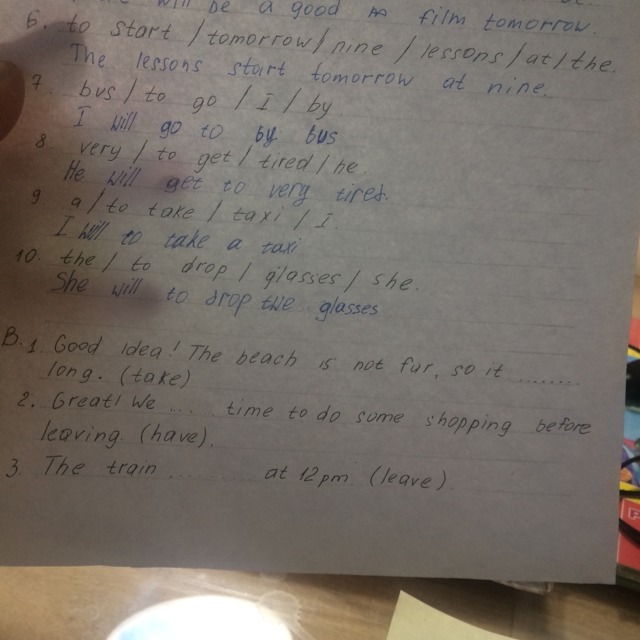 will be a good film tomorrow.
6. to start / tomorrow / nine / lessons / at / the.
The lessons start tomorrow at nine.
7. bus / to go / I / by
I will go to by bus
8. very / to get / tired / he.
He will get to very tired.
9. a / to take / taxi / I.
I will to take a taxi
10. the / to drop / glasses / she.
She will to drop the glasses
B. 1. Good idea! The beach is not far, so it ........
long. (take)
2. Great! We ... time to do some shopping before
leaving (have).
3. The train .......... at 12pm (leave)